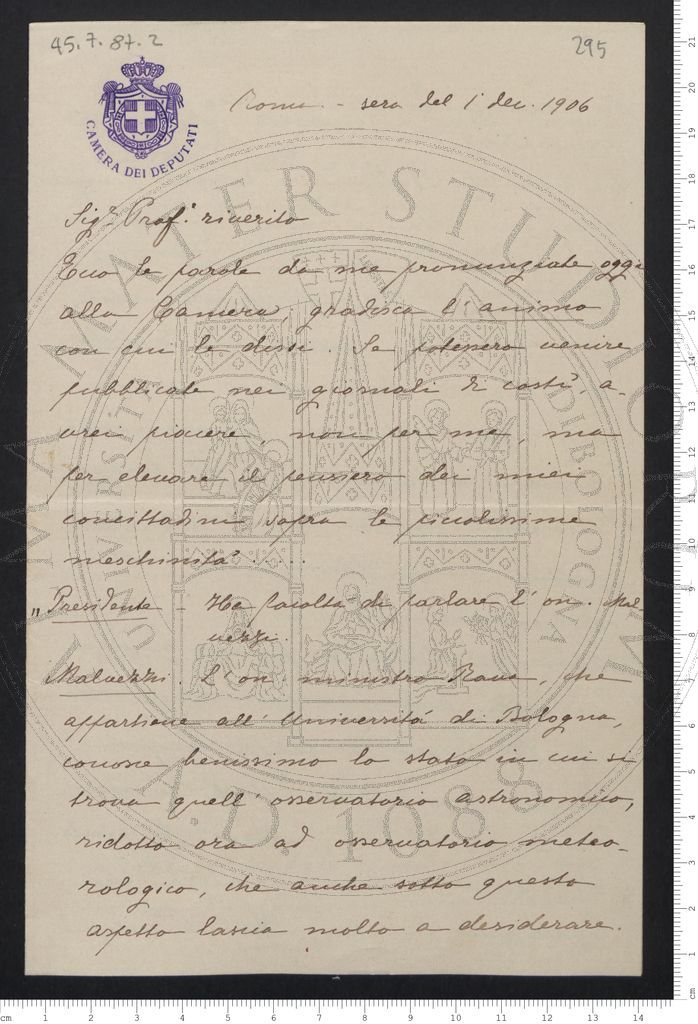 45.7.87.2
295
CAMERA DEI DEPUTATI
Roma - sera del 1° dec. 1906
Sigr. Prof.r riverito
Ecco le parole da me pronunziate oggi
alla Camera, gradisca l'animo
con cui le dissi. Se potessero venire
pubblicate nei giornali di costì, a-
vrei piacere, non per me, ma
per elevare il pensiero dei miei
concittadini sopra le piccolissime
meschinità .....
"Presidente - Ha facoltà di parlare l'on. Mal
vezzi.
Malvezzi. L'on. ministro Rava, che
appartiene all'Università di Bologna,
conosce benissimo lo stato in cui si
trova quell'osservatorio astronomico,
ridotto ora ad osservatorio meteo-
rologico, che anche sotto questo
aspetto lascia molto a desiderare.
ALMA MATER STUDIORUM
UNIVERSITÀ DI BOLOGNA
A.D. 1088
cm 1 2 3 4 5 6 7 8 9 10 11 12 13 14
cm 1 2 3 4 5 6 7 8 9 10 11 12 13 14 15 16 17 18 19 20 21